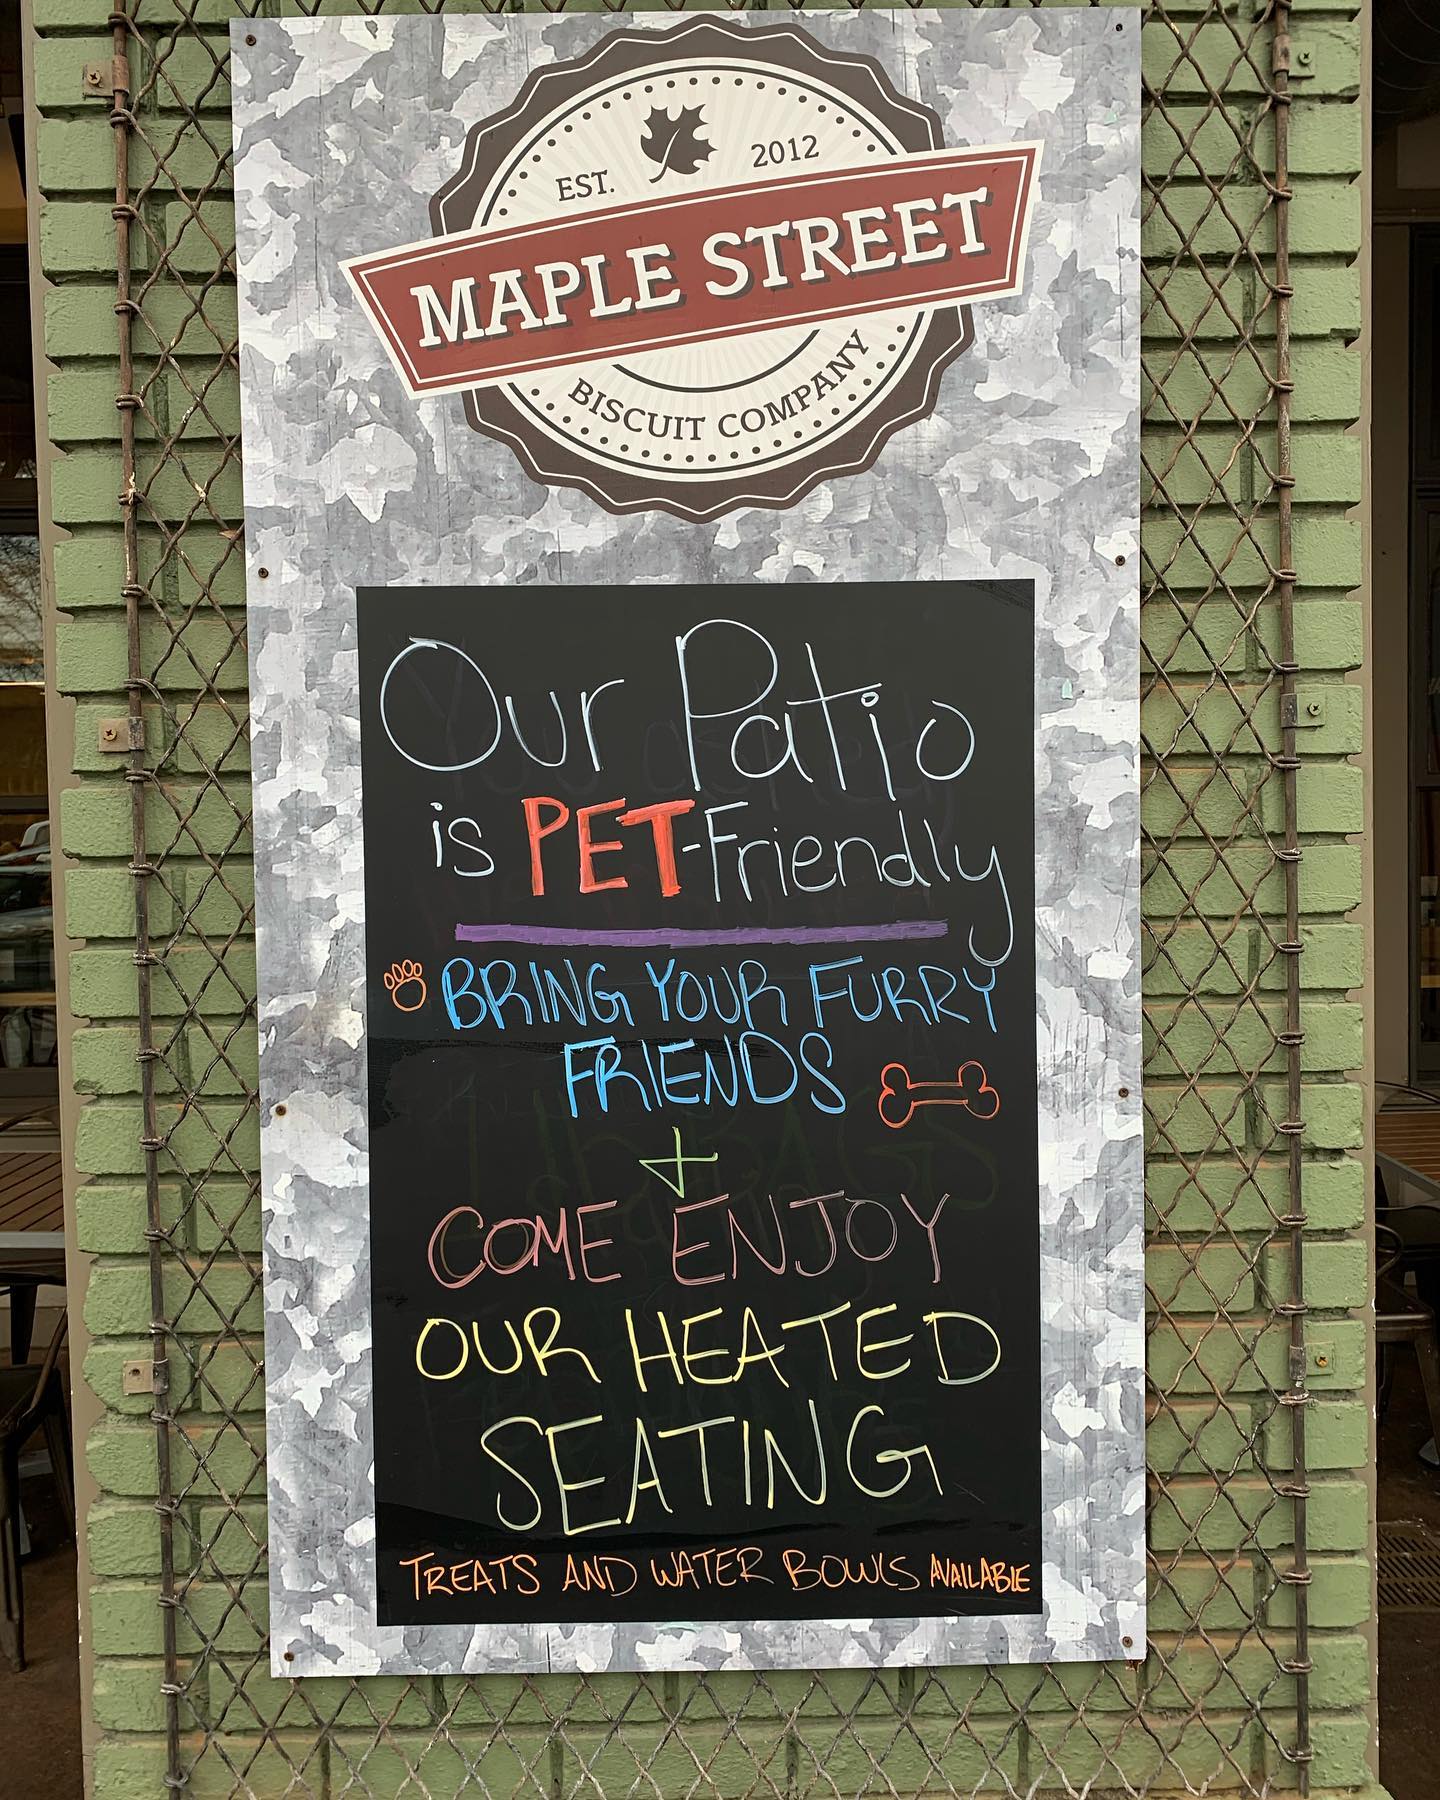 EST. 2012
MAPLE STREET
BISCUIT COMPANY
Our Patio
is PET-Friendly
BRING YOUR FURRY
FRIENDS
+
COME ENJOY
OUR HEATED
SEATING
TREATS AND WATER BOWLS AVAILABLE